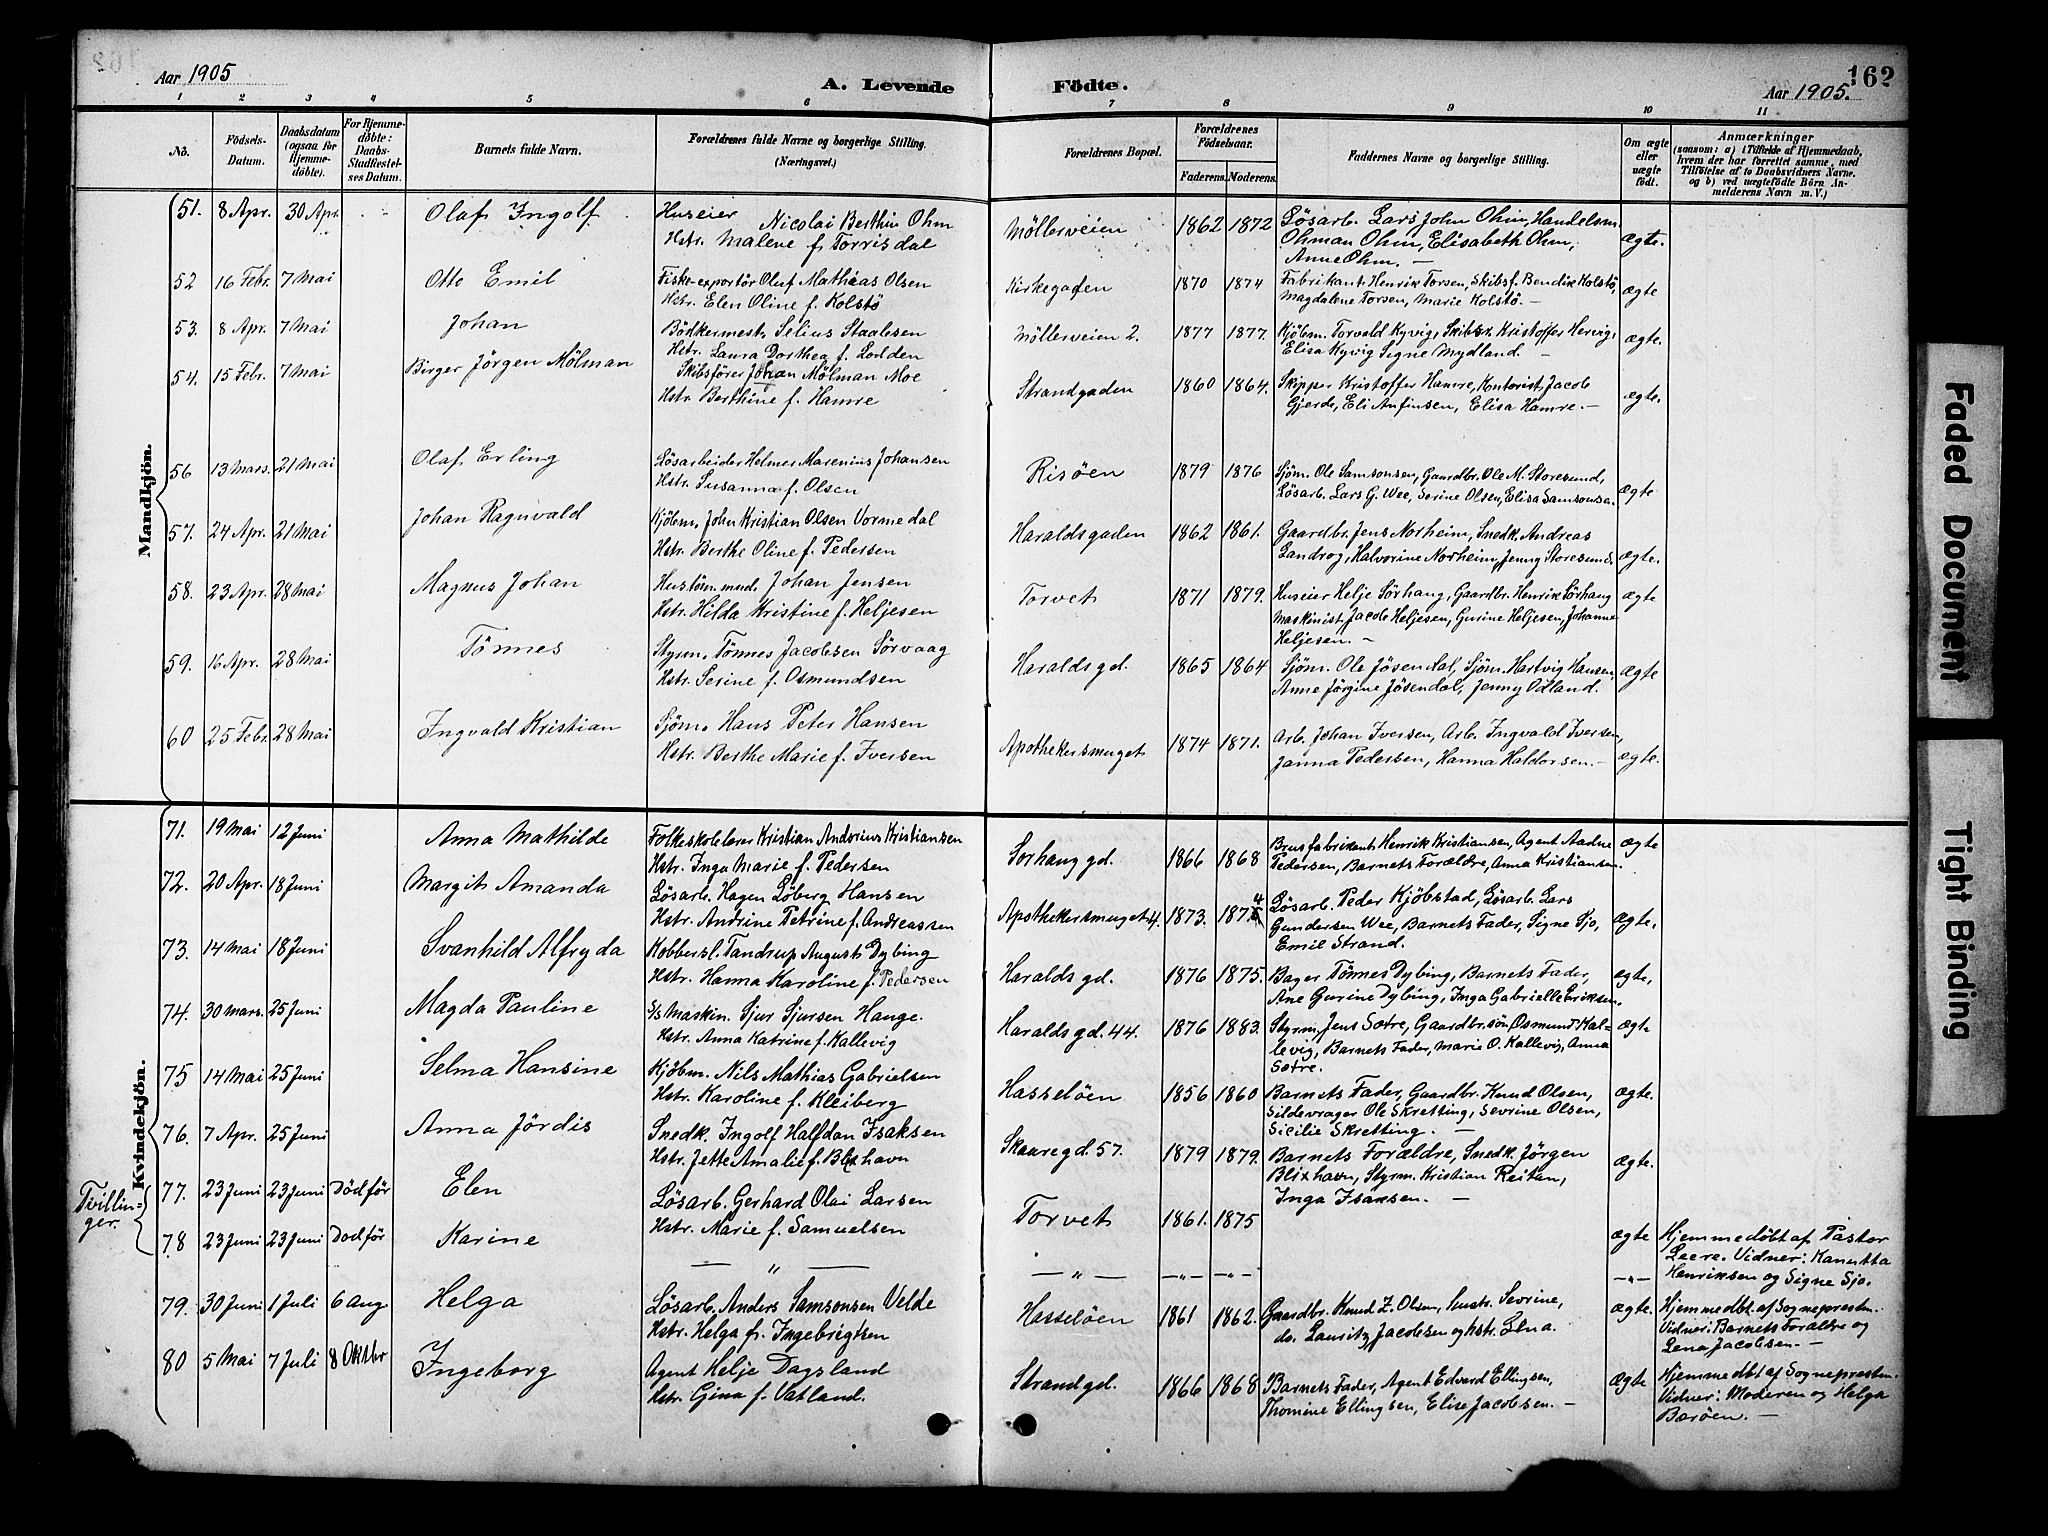 162
Aar 1905
A. Levende Födte.
Aar 1905.
1 2 3 4 5 6 7 8 9 10 11
No.
Födsels-Datum.
Daabsdatum (ogsaa for Hjemmedöbte).
For Hjemmedöbte: Daabs-Stadfæstelses Datum.
Barnets fulde Navn.
Forældrenes fulde Navne og borgerlige Stilling. (Næringsvei.)
Forældrenes Bopæl.
Forældrenes Födselsaar.
Faderens. Moderens.
Faddernes Navne og borgerlige Stilling.
Om ægte eller uægte födt.
Anmærkninger
(saasom: a) i Tilfælde af Hjemmedaab, hvem der har forrettet samme, med Tilföielse af to Daabsvidners Navne, og b) ved uægtefödte Börn Anmelderens Navn m. V.)
Mandkjön.
51. 8 Apr. 30 Apr. Olaf Ingolf
Huseier Nicolai Berthin Ohm
Hstr. Malene f. Torrisdal
Möllerveien 1862 1872
Lösarb. Lars John Ohm, Handelsm.
Ohman Ohm, Elisabeth Ohm,
Anne Ohm. —
ægte.
52 16 Febr. 7 Mai Otto Emil
Fiske-exportör Oluf Mathias Olsen
Hstr. Elen Oline f. Kolstö
Kirkegaden 1870 1874
Fabrikant Henrik Torsen, Skibsf. Bendik Kolstö,
Magdalene Torsen, Marie Kolstö. —
ægte
53. 8 Apr. 7 Mai Johan
Bödkermest. Selius Staalesen
Hstr. Laura Dorthea f. Lodden
Möllerveien 2. 1877 1877.
Kjöbm. Torvald Kyvig, Skibsr. Kristoffer Hervig,
Elisa Kyvig Signe Mydland. —
ægte.
54. 15 Febr. 7 Mai Birger Jörgen Mölman
Skibsförer Johan Mölman Moe
Hstr. Berthine f. Hamre
Strandgaden 1860 1864.
Skipper Kristoffer Hamre, Kontorist Jacob
Gjerde, Eli Anfinsen, Elisa Hamre. —
ægte.
56 13 Mars. 21 Mai Olaf Erling
Lösarbeider Helmer Marenius Johansen
Hstr. Susanna f. Olsen
Risöen 1879 1876
Sjöm. Ole Samsonsen, Gaardbr. Ole M. Storesund,
Lösarb. Lars G. Wee, Serine Olsen, Elisa Samsonsen
ægte
57. 24 Apr. 21 Mai Johan Ragnvald
Kjöbm. John Kristian Olsen Vormedal
Hstr. Berthe Oline f. Pedersen
Haraldsgaden 1862 1861.
Gaardbr. Jens Norheim, Snedk. Andreas
Landrog, Halvorine Norheim, Jenny Storesund.
ægte.
58. 23 Apr. 28 Mai Magnus Johan
Hustömmend. Johan Jensen
Hstr. Hilda Kristine f. Heljesen
Torvet 1871 1879.
Huseier Helje Sörhang, Gaardbr. Henrik Sörhang
Maskinist Jacob Heljesen, Gurine Heljesen, Johanne
Heljesen. —
ægte
59. 16 Apr. 28 Mai Tönnes
Styrm. Tönnes Jacobsen Sörvaag
Hstr. Serine f. Osmundsen
Haraldsgd. 1865 1864
Sjöm. Ole Jösendal, Sjöm. Hartvig Hansen,
Anne Jörgine Jösendal, Jenny Ödland.
ægte
60 25 Febr. 28 Mai Ingvald Kristian
Sjöm. Hans Peter Hansen
Hstr. Berthe Marie f. Iversen
Apothekersmuget 1874 1871.
Arb. Johan Iversen, Arb. Ingvald Iversen,
Janna Pedersen, Hanna Haldorsen. —
ægte.
Kvindekjön.
71. 19 Mai 12 Juni Anna Mathilde
Folkeskolelærer Kristian Andorius Kristiansen
Hstr. Inga Marie f. Pedersen
Sorhauggd. 1866 1868
Brusfabrikant Henrik Kristiansen, Agent Aadne
Pedersen, Barnets Forældre, Anna Kristiansen.
ægte
72. 20 Apr. 18 Juni Margit Amanda
Lösarb. Hagen Löberg Hansen
Hstr. Andrine Petrine f. Andreassen
Apothekersmuget 4. 1873. 1874
Lösarb. Peder Kjöbstad, Lösarb. Lars
Gundersen Wee, Barnets Fader, Signe Sjo,
Emil Strand.
ægte.
73. 14 Mai 18 Juni Svanhild Alfryda
Kobbersl. Tandrup August Dybing
Hstr. Hanna Karoline f. Pedersen
Haraldsgd. 1876 1875.
Bager Tönnes Dybing, Barnets Fader,
Ane Gurine Dybing, Inga Gabrielle Eriksen.
ægte,
74. 30 Mars. 25 Juni Magda Pauline
S/S Maskin. Sjur Sjursen Hauge.
Hstr. Anna Katrine f. Kallevig
Haraldsgd. 44. 1876 1883.
Styrm. Jens Sætre, Gaardbr.sön Osmund Kal-
levig, Barnets Fader, Marie O. Kallevig, Anna
Sætre.
ægte
75 14 Mai 25 Juni Selma Hansine
Kjöbm. Nils Mathias Gabrielsen
Hstr. Karoline f. Kleiberg
Hasselöen 1856 1860
Barnets Fader, Gaardbr. Knud Olsen,
Sildevrager Ole Skretting, Sevrine Olsen,
Sicilie Skretting. —
ægte.
76. 7 Apr. 25 Juni Anna Jördis
Snedk. Ingolf Halfdan Isaksen
Hstr. Jette Amalie f. Blixhavn
Skauregd. 57. 1879 1879.
Barnets Forældre, Snedk. Jörgen
Blixhavn, Styrm. Kristian Reitan,
Inga Isaksen. —
ægte.
Tvillin-
ger.
77. 23 Juni 23 Juni Död för Elen
Lösarb. Gerhard Olai Larsen
Hstr. Marie f. Samuelsen
Torvet 1861. 1875
ægte
Hjemmedöbt af Pastor
Leere. Vidner: Kanutta
Henriksen og Signe Sjo.
78 23 Juni 23 Juni Dod för Karine
— " — — " — — " — — " — — " —
79. 30 Juni 1 Juli 6 Aug. Helga
Lösarb. Anders Samsonsen Velde
Hstr. Helga f. Ingebrigtsen
Hasselöen 1861 1862.
Gaardbr. Knud Z. Olsen, Hustr. Sevrine,
do. Lauritz Jacobsen og hstr. Lena.
ægte.
Hjemmedbt. af Sognepresten.
Vidner: Barnets Forældre og
Lena Jacobsen. —
80 5 Mai 7 Juli 8 Oktbr Ingeborg
Agent Helje Dagsland
Hstr. Gina f. Vatland.
Strandgd. 1866 1868
Barnets Fader, Agent Edvard Ellingsen,
Thomine Ellingsen, Elise Jacobsen. —
ægte
Hjemmedbt af Sognepresten.
Vidner: Moderen og Helga
Baröen. —
Faded Document
Tight Binding